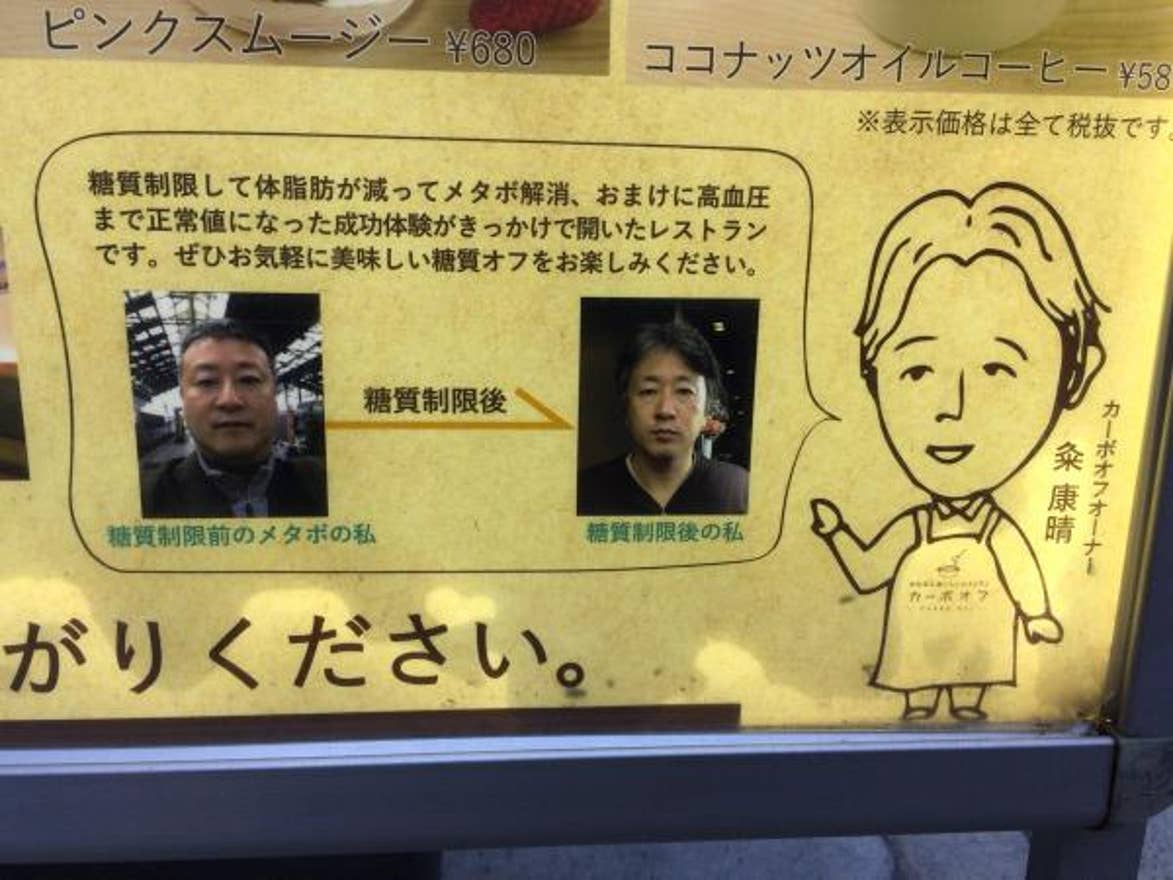 ピンクスムージー ¥680
ココナッツオイルコーヒー ¥58
※表示価格は全て税抜です
糖質制限して体脂肪が減ってメタボ解消、おまけに高血圧
まで正常値になった成功体験がきっかけで開いたレストラン
です。ぜひお気軽に美味しい糖質オフをお楽しみください。
糖質制限後
糖質制限前のメタボの私
糖質制限後の私
カーボオフオーナー
粂 康晴
カーボオフ
がりください。